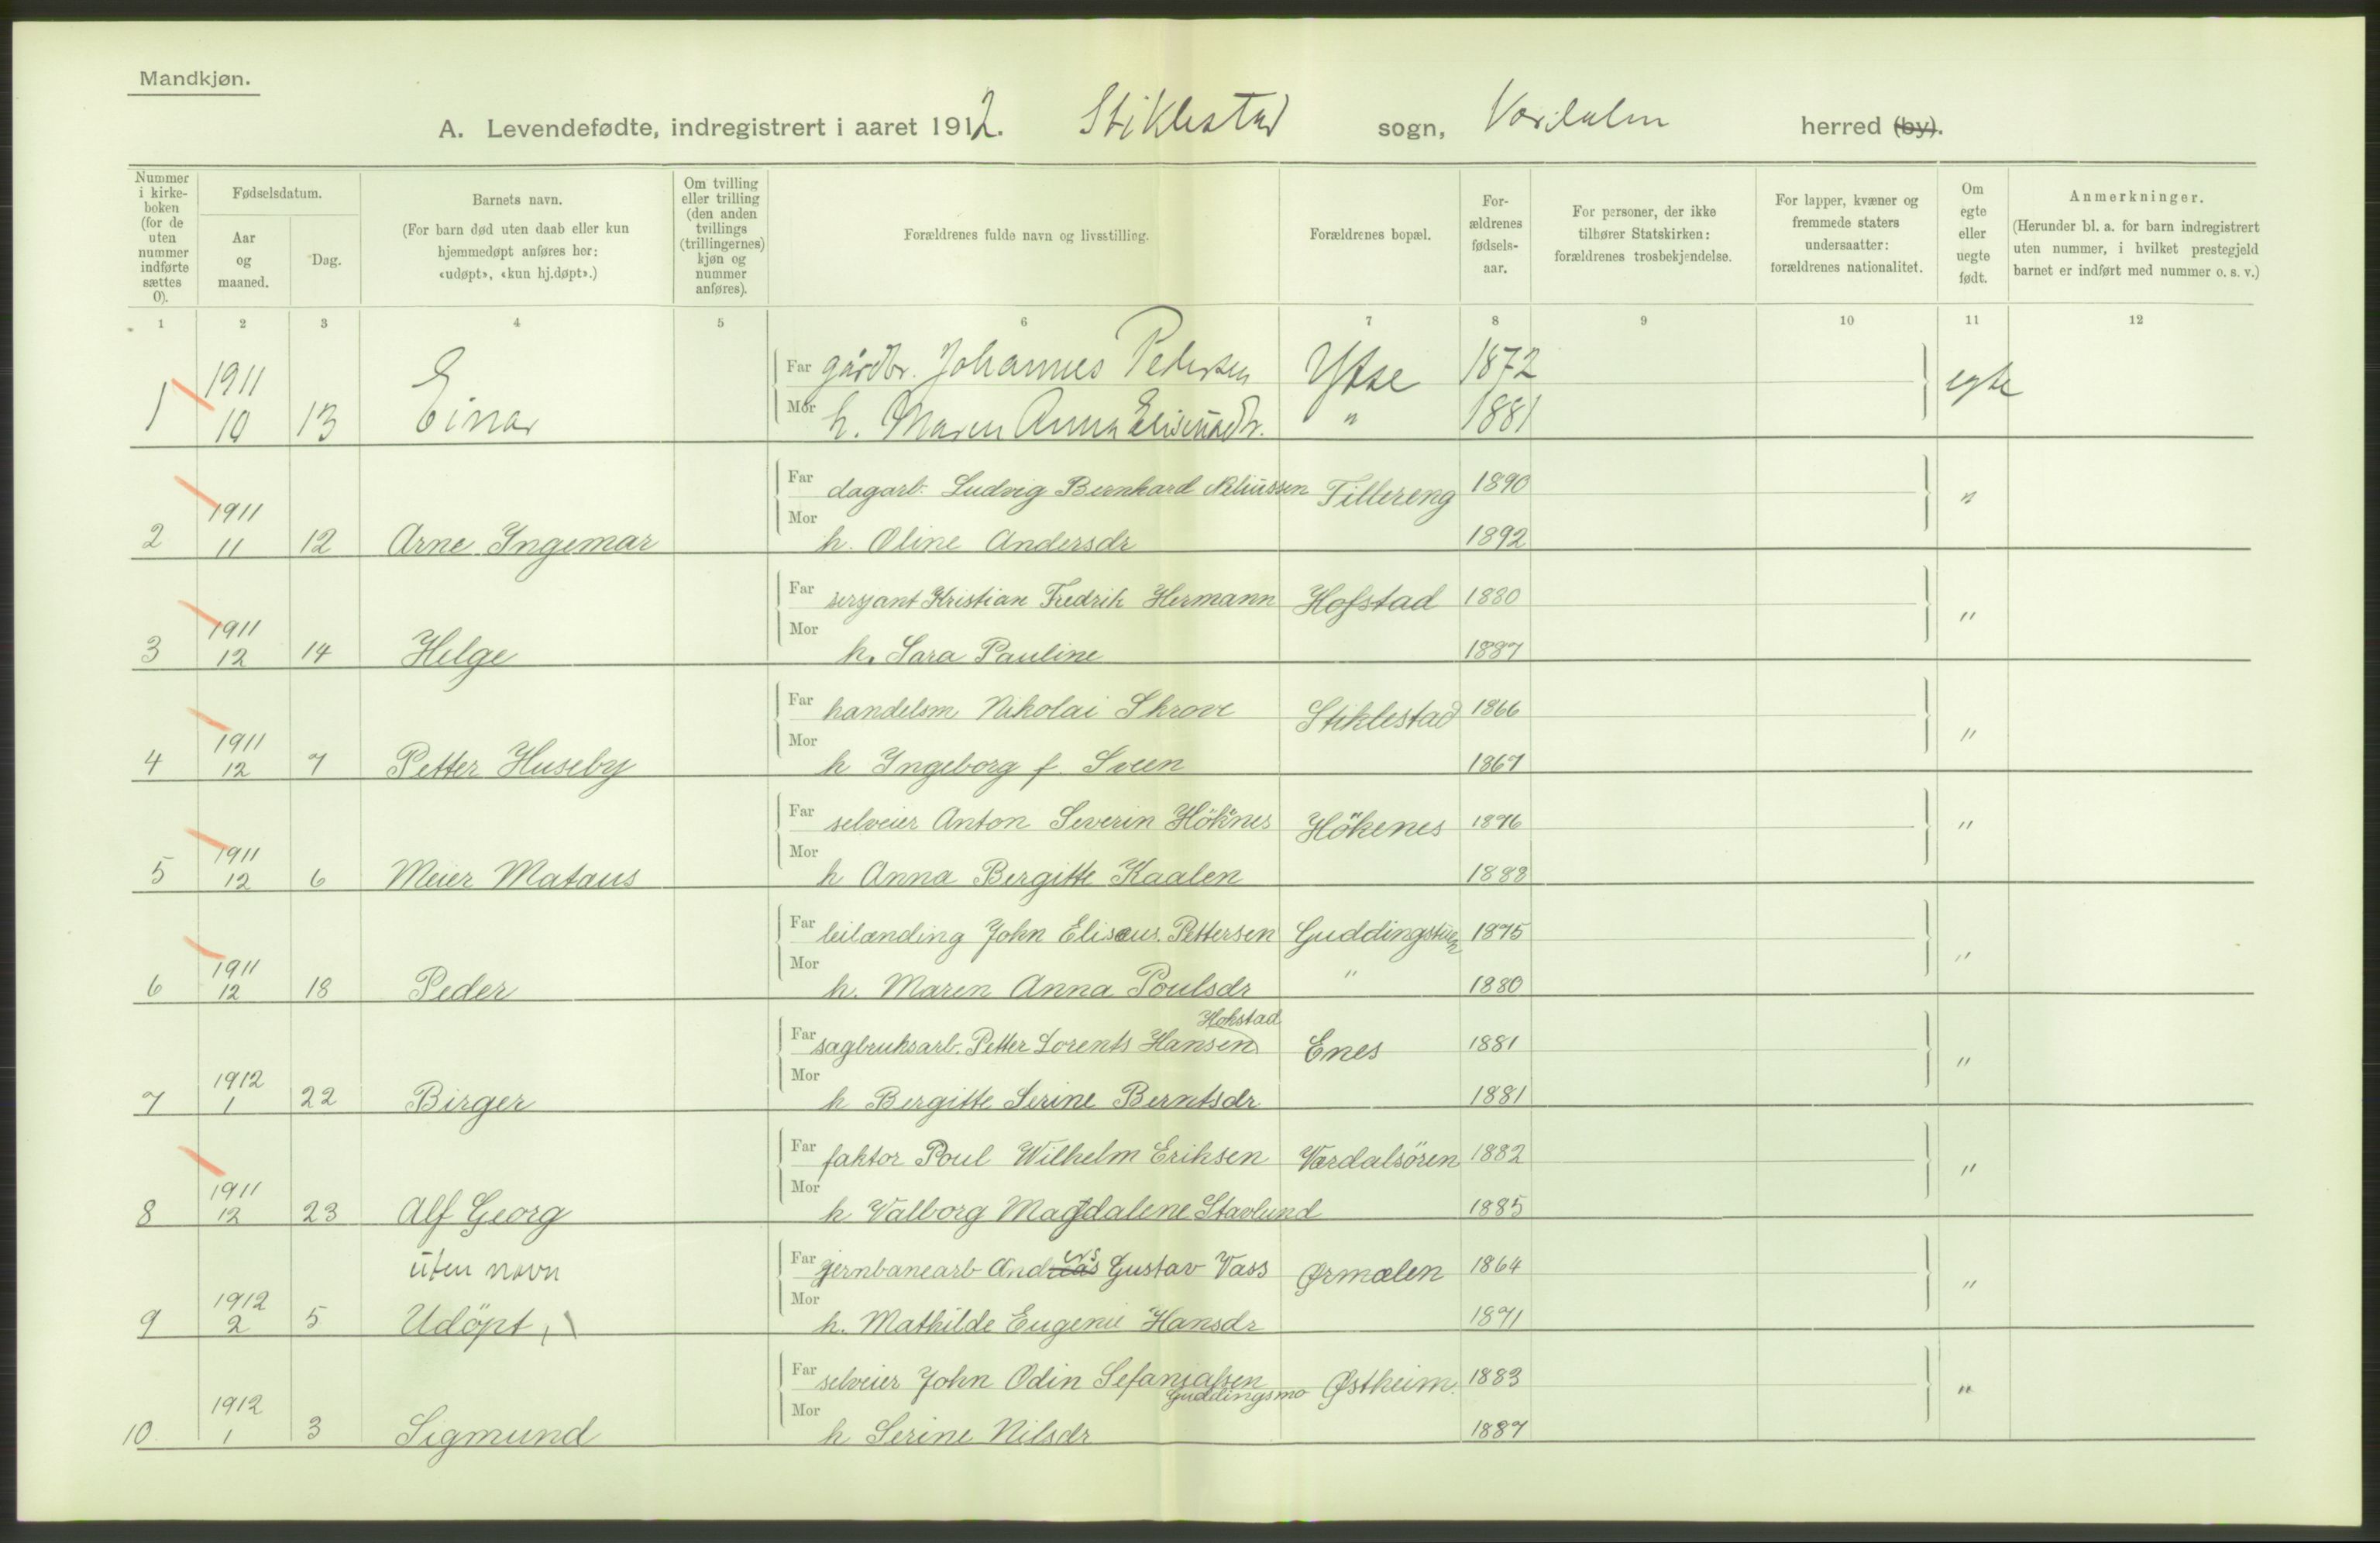 Mandkjøn.
A. Levendefødte, indregistrert i aaret 1912. Stiklestad sogn, Værdalen herred (by).
Nummer i kirke-boken (for de uten nummer indførte sættes 0).
Fødselsdatum.
Aar og maaned.
Dag.
Barnets navn.
(For barn død uten daab eller kun hjemmedøpt anføres her: «udøpt», «kun hj.døpt».)
Om tvilling eller trilling (den anden tvillings (trillingernes) kjøn og nummer anføres).
Forældrenes fulde navn og livsstilling.
Forældrenes bopæl.
For-ældrenes fødsels-aar.
For personer, der ikke tilhører Statskirken: forældrenes trosbekjendelse.
For lapper, kvæner og fremmede staters undersaatter: forældrenes nationalitet.
Om egte eller uegte født.
Anmerkninger.
(Herunder bl. a. for barn indregistrert uten nummer, i hvilket prestegjeld barnet er indført med nummer o. s. v.)
1 2 3 4 5 6 7 8 9 10 11 12
1911 Far gårdbr. Johannes Petersen Ytse 1872 egte
1 10 13 Einar Mor h. Maren Anna " 1881
1911 Far dagarb. Ludvig Bernhard Neliussen Tillereng 1890 "
2 11 12 Arne Ingemar Mor h. Oline Andersdr 1892
1911 Far sersjant Kristian Fredrik Hermann Hofstad 1880 "
3 12 14 Helge Mor h. Sara Pauline 1887
1911 Far handelsm Nikolai Skrove Stiklestad 1866 "
4 12 7 Petter Huseby Mor h Ingeborg f. Sveen 1867
1911 Far selveier Anton Severin Höknes Hökenes 1876 "
5 12 6 Meier Mataus Mor h Anna Bergitte Kaalen 1888
1911 Far leilænding John Eliseus Pettersen Guddingstuen 1875 "
6 12 18 Peder Mor h. Maren Anna Poulsdr " 1880
Hokstad
1912 Far sagbruksarb. Petter Lorents Hansen Enes 1881 "
7 1 22 Birger Mor h Bergitte Serine Berntsdr 1881
1911 Far faktor Poul Wilhelm Eriksen Værdalsören 1882 "
8 12 23 Alf Georg Mor h Valborg Magdalene Stavlund 1885
uten navn Far jernbanearb Andreas ers Gustav Vass Ørmælen 1864 "
1912
9 2 5 Udöpt, Mor h. Mathilde Eugenie Hansdr 1871
Far selveier John Odin Sefaniassen Østheim. 1883 "
Guddingsmo
1912
10 1 3 Sigmund Mor h Serine Nilsdr 1887